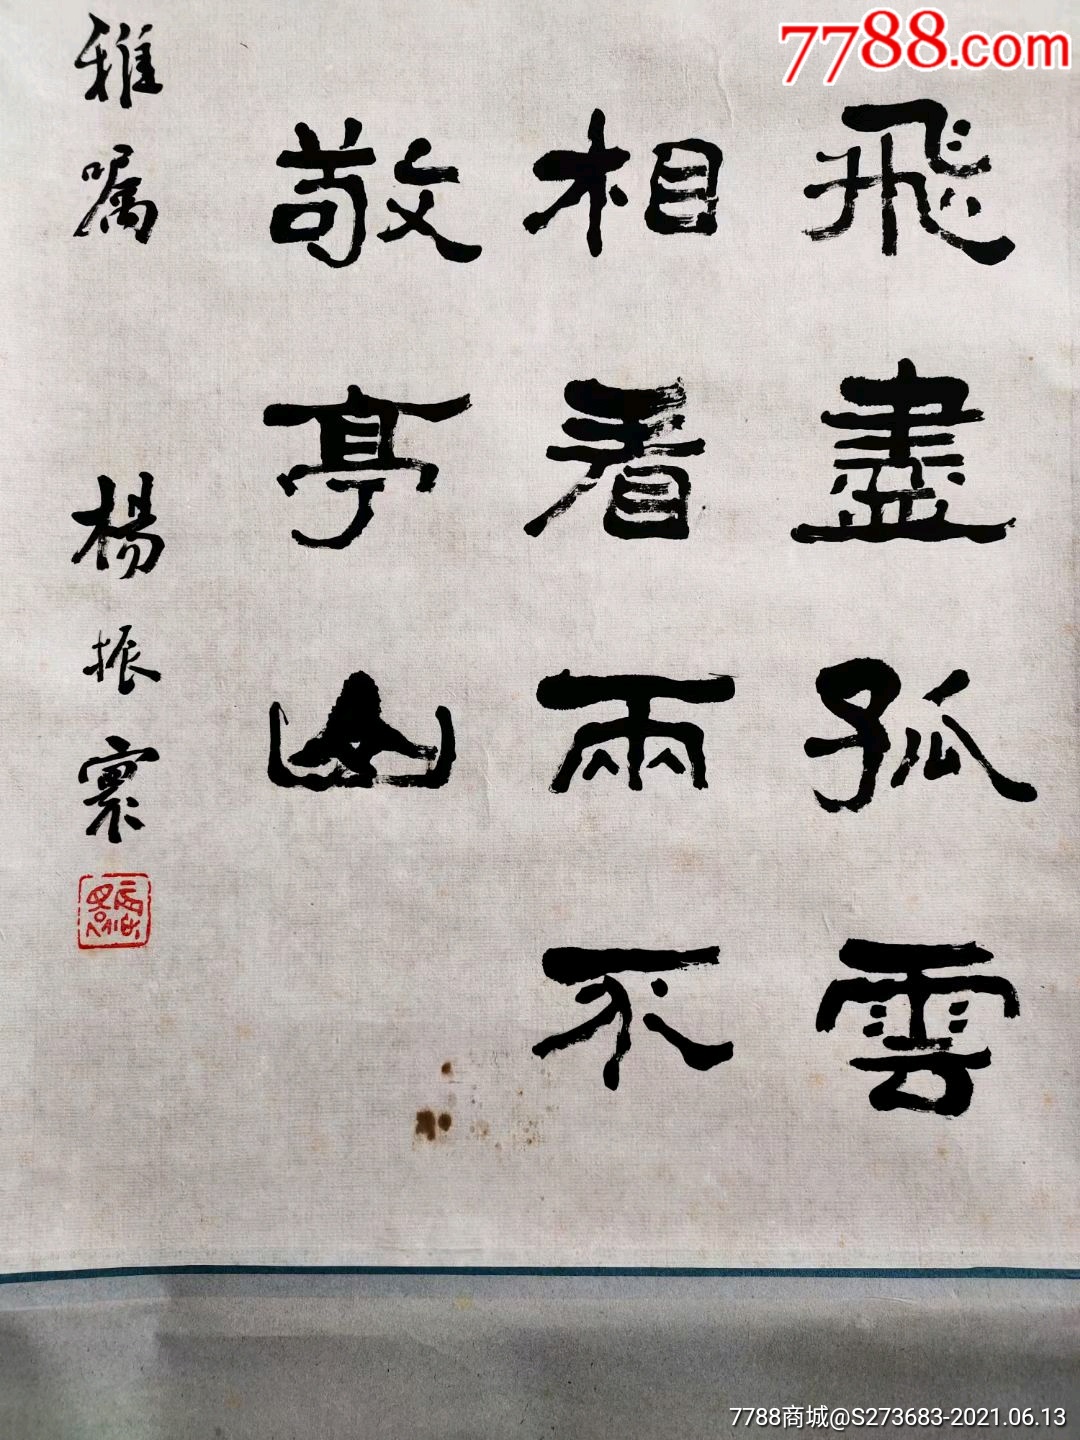 7788.com
飛盡孤雲
相看兩不
敬亭山
雅嘱 楊振寰
7788商城@S273683-2021.06.13